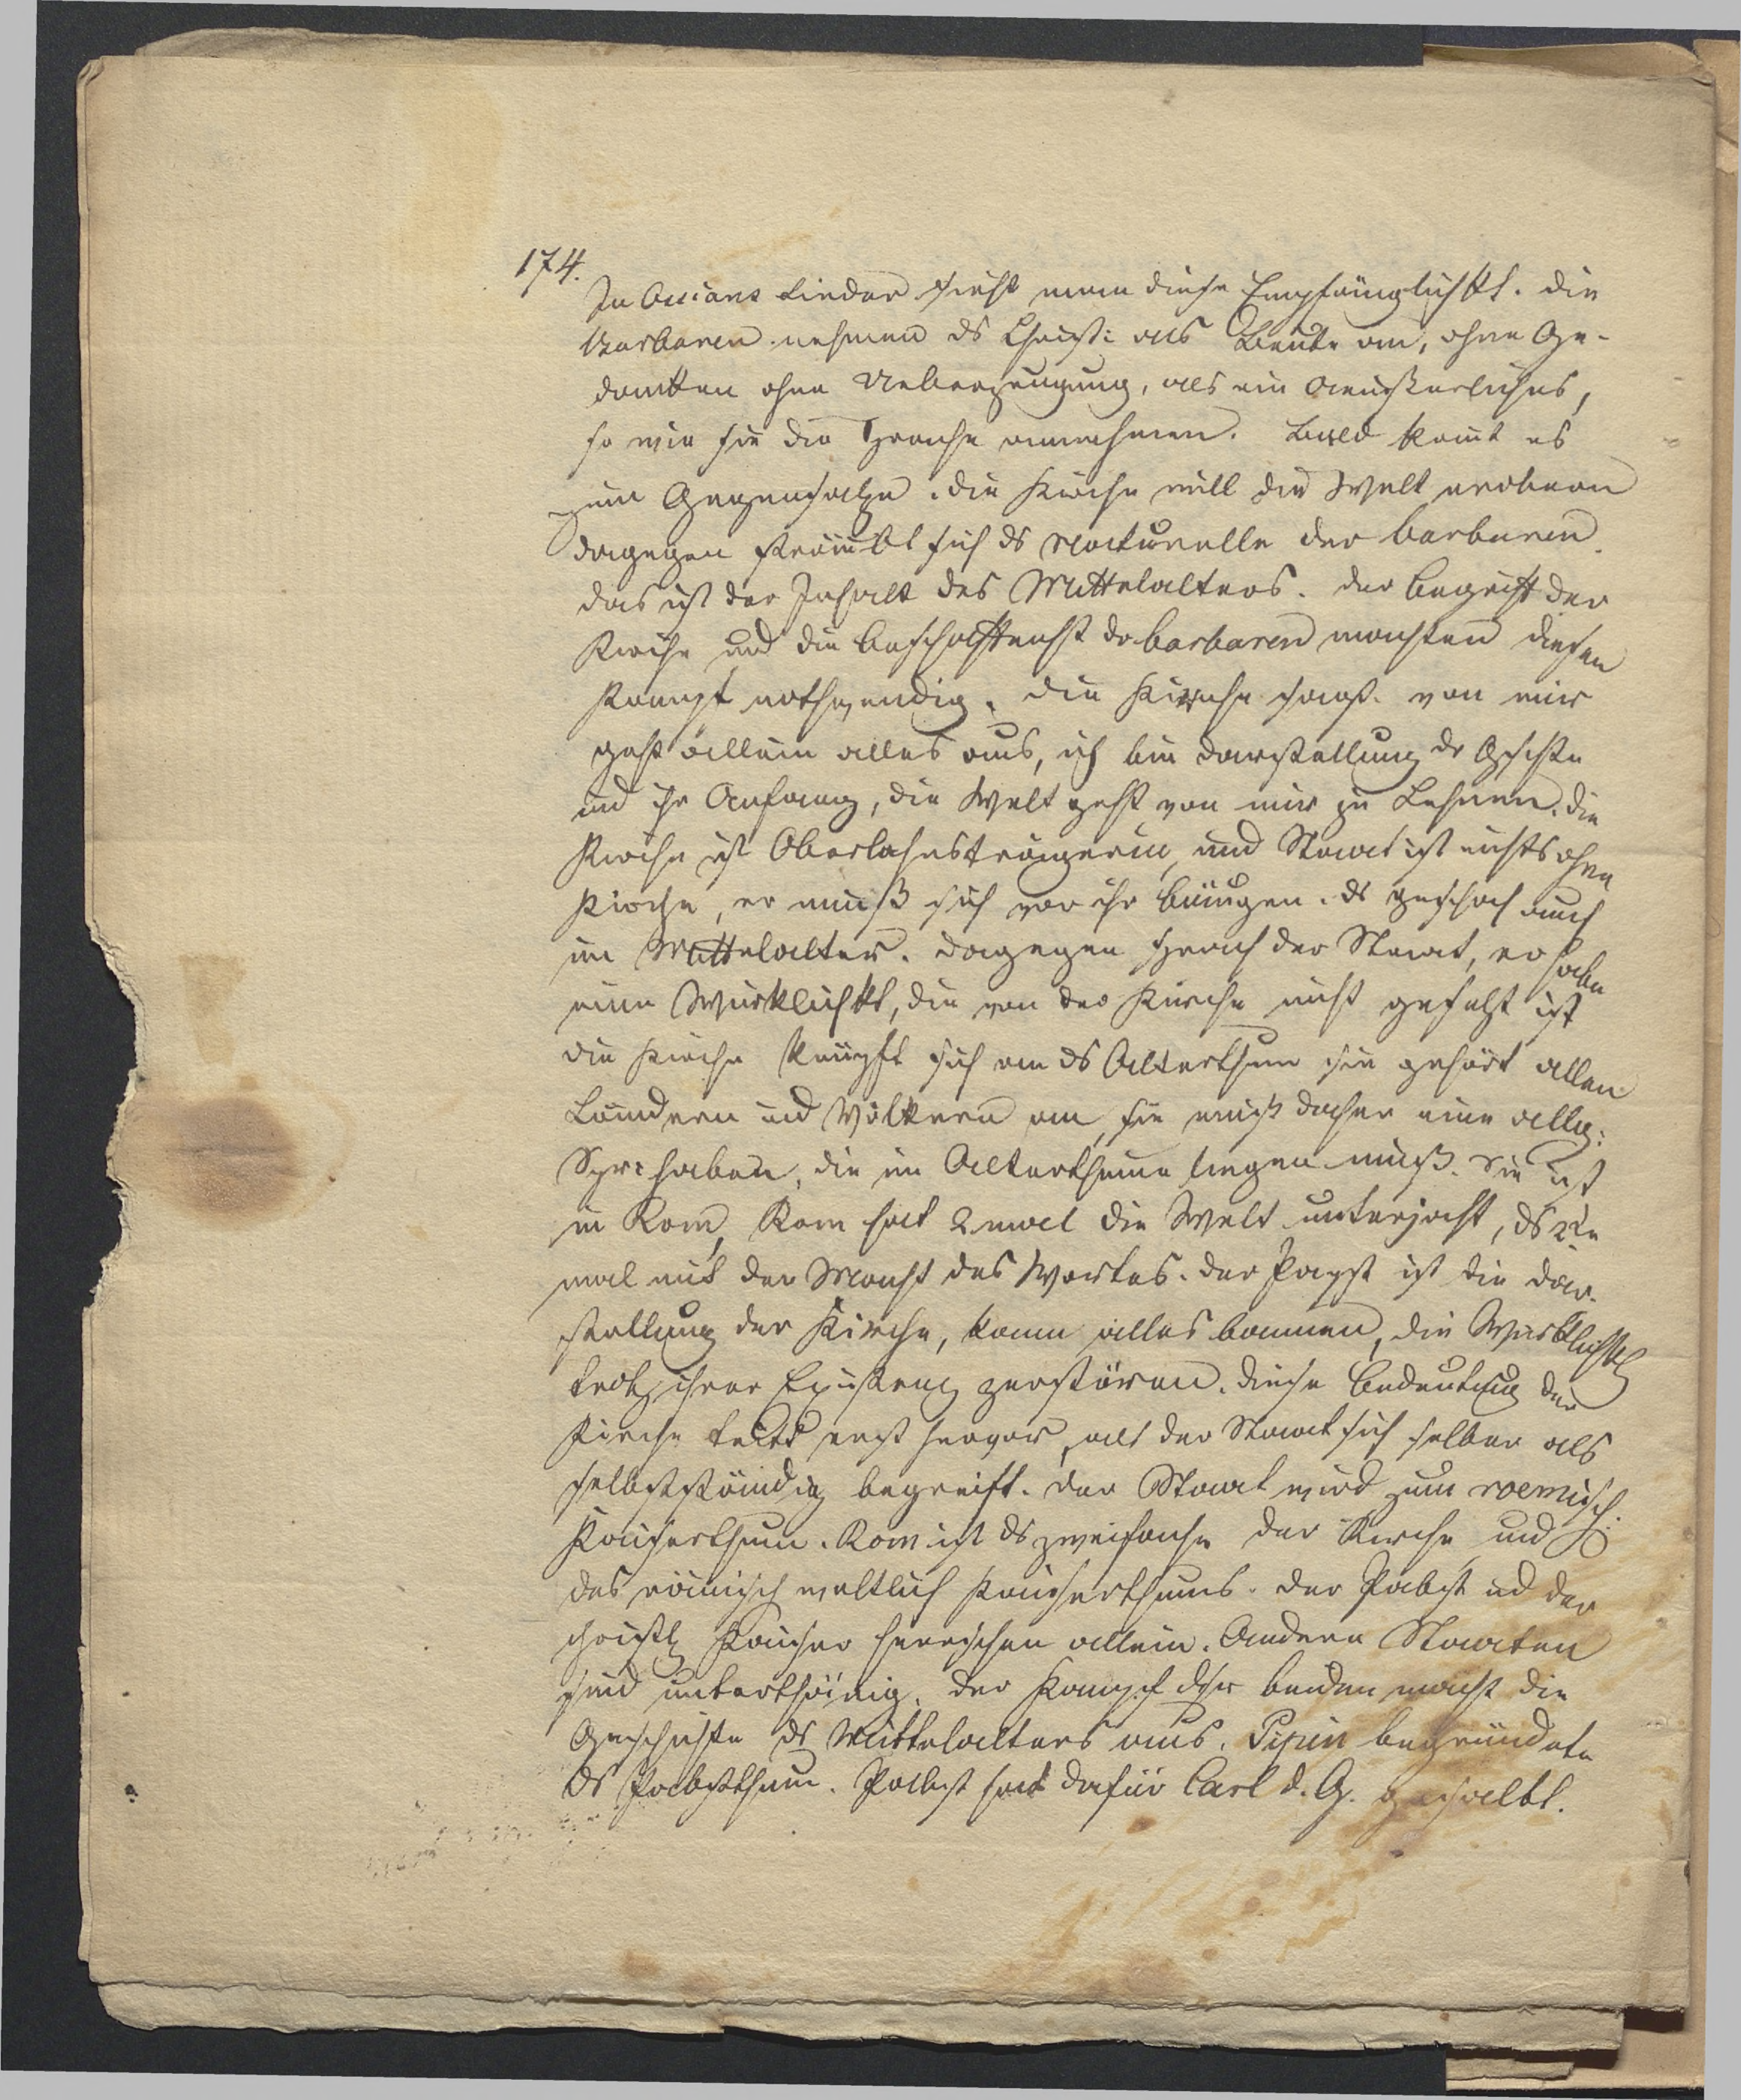 174.
In Ossians Lieder sieht man diese Empfänglichkt. Die
Barbaren nehmen ds Christ: als Beute an, ohne Ge-
danken ohne Ueberzeugung, als ein Aeußerliches,
so wie sie die Sprache annehmen. Bald komt es
zum Gegensatze. die Kirche will die Welt erobern
dagegen sträubt sich ds Naturelle der Barbaren.
das ist der Inhalt des Mittelalters. der Begriff der
Kirche und die Beschaffenht dr Barbaren machten diesen
Kampf nothwendig. die Kirche sagt. von mir
geht allein alles aus, ich bin Darstellung dr Gschichte
und ihr Anfang, die Welt geht von mir zu Lehnen. die
Kirche ist Oberlehnsträgerin, und Staat ist nichts ohne
Kirche, er muß sich vor ihr beugen. ds geschah auch
im Mittelalter. dagegen sprach der Staat, er habe
eine Wirklichkt, die von der Kirche nicht gesetzt ist
die Kirche knüpft sich an ds Alterthum sie gehört allen
Ländern und Völkern an, sie muß daher eine allg:
Spr: haben, die im Alterthume liegen muß. Sie ist
in Rom, Rom hat 2 mal die Welt unterjocht, ds 2te
mal mit der Macht des Wortes. der Papst ist die Dar-
stellung der Kirche, kann alles bannen, die Wirklichkt
trotz ihrer Existenz zerstören. diese Bedeutung der
Kirche tritt erst hervor, als der Staat sich selber als
selbstständig begreift. der Staat wird zum roemisch:
Kaiserthum. Rom ist ds zweifache der Kirche und
des römisch weltlich Kaiserthums. der Pabst ud der
christl Kaiser herrschen allein. Andere Staaten
sind unterthänig. der Kampf dsr beiden macht die
Geschichte ds Mittelalters aus. Pipin begründete
ds Pabstthum. Pabst hat dafür Carl d. G. gesalbt.